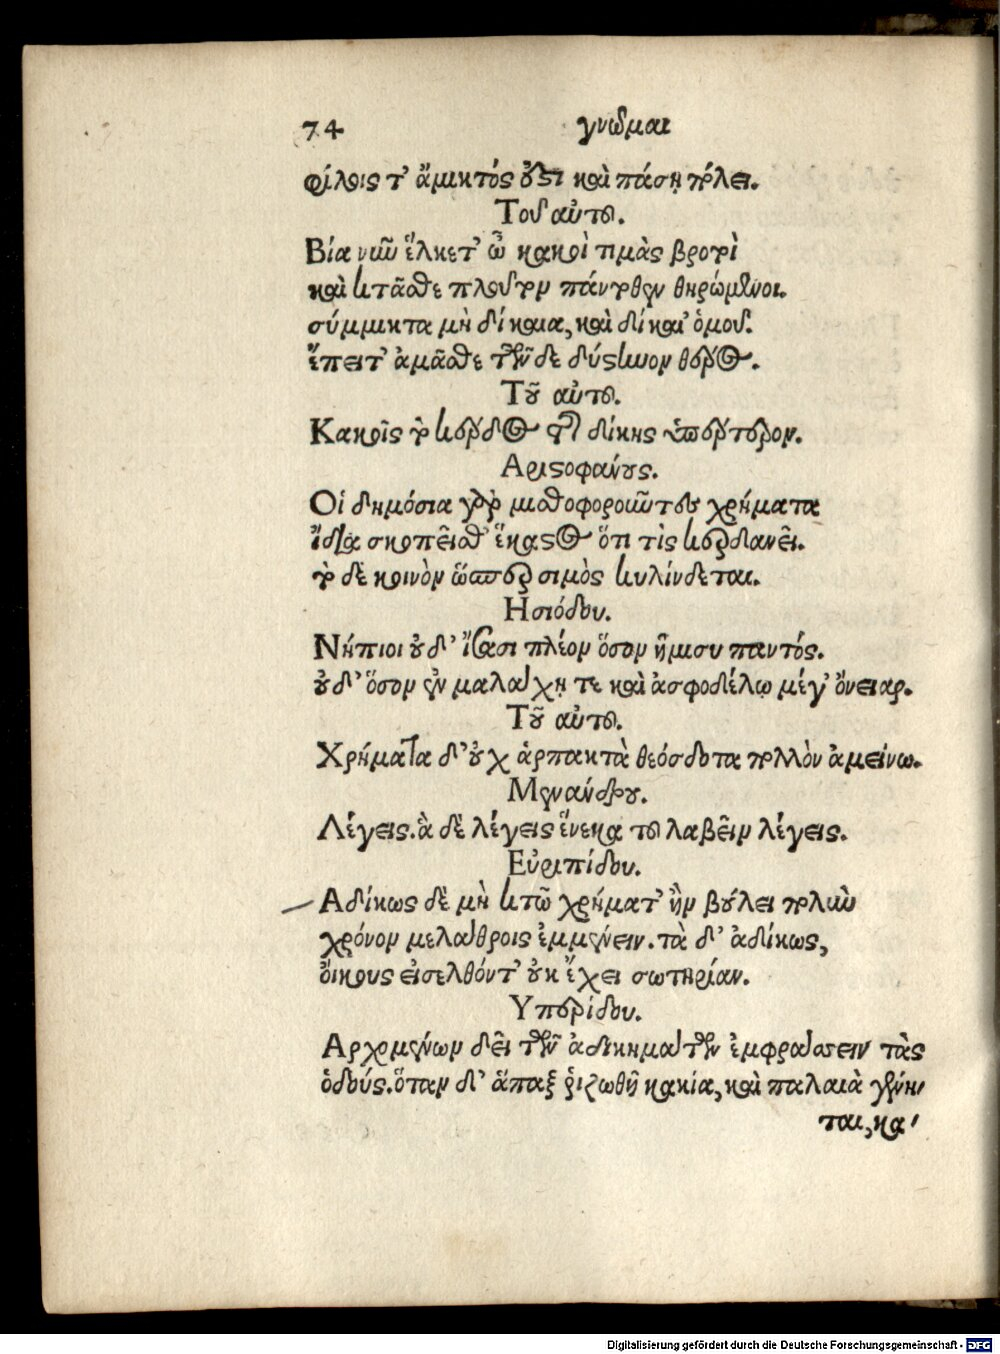 74 γνῶμαι
φίλοις τ' ἄμικτός ὅστι καὶ πάσῃ πόλει.
Τοῦ αὐτοῦ.
Βίᾳ νῦν ἕλκετ' ὦ κακοὶ τιμὰς βροτοὶ
καὶ κτᾶσθε πλοῦτον πάντοθεν θηρώμενοι.
σύμμικτα μὴ δίκαια, καὶ δίκαι' ὁμοῦ.
ἔπειτ' ἀμᾶσθε τῶνδε δύστηνον θέρος.
Τοῦ αὐτοῦ.
Κακοῖς τὸ κέρδος τῆς δίκης ὑπέρτερον.
Αριστοφάνους.
Οἱ δημόσια γὰρ μισθοφοροῦντες χρήματα
ἴδια σκοπεῖσθ' ἕκαστος ὅτι τὶς κερδανεῖ.
τὸ δὲ κοινὸν ὥσπερ σιμὸς κυλίνδεται.
Ησιόδου.
Νήπιοι οὐδ' ἴσασι πλέον ὅσον ἥμισυ παντός.
οὐδ' ὅσον ἐν μαλάχῃ τε καὶ ἀσφοδέλῳ μέγ' ὄνειαρ.
Τοῦ αὐτοῦ.
Χρήματα δ' οὐχ ἁρπακτὰ θεόσδοτα πολλὸν ἀμείνω.
Μενάνδρου.
Λέγεις. ἃ δὲ λέγεις ἕνεκα τοῦ λαβεῖν λέγεις.
Εὐριπίδου.
Αδίκως δὲ μὴ κτῶ χρήματ' ἢν βούλει πολὺν
χρόνον μελάθροις ἐμμένειν. τὰ δ' ἀδίκως,
οἴκους εἰσελθόντ' οὐκ ἔχει σωτηρίαν.
Υπερίδου.
Αρχομένων δεῖ τῶν ἀδικημάτων ἐμφράσσειν τὰς
ὁδούς. ὅταν δ' ἅπαξ ῥιζωθῇ κακία, καὶ παλαιὰ γένη-
ται, κα-
Digitalisierung gefördert durch die Deutsche Forschungsgemeinschaft - DFG